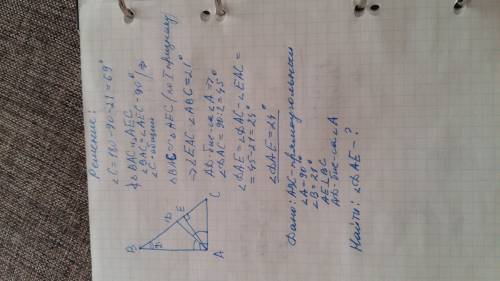 Решение:
∠C=180-90-21=69°
△BAC и △AEC
∠BAC=∠AEC=90° | ⇒
∠C-общий
△BAC ∼ △AEC (по I признаку)
⇒ ∠EAC=∠ABC=21°
AD-бис-са ∠A ⇒
∠DAC=90:2=45°
∠DAE=∠DAC-∠EAC=
=45-21=24°
∠DAE=24°
B
D
E
C
A
Дано: ABC-прямоугольный
∠A=90°
∠B=21°
AE⊥BC
AD-бис-са ∠A
Найти: ∠DAE-?